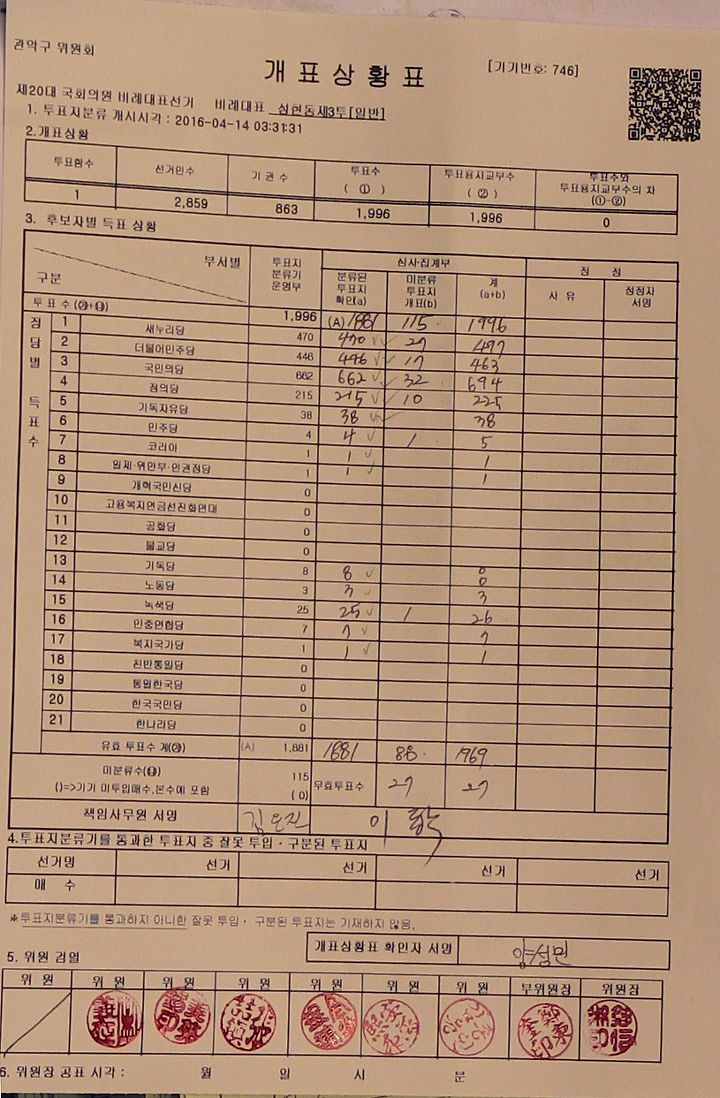 관악구 위원회
개표상황표
[기기번호: 746]
제20대 국회의원 비례대표선거 비례대표 성현동제3투[일반]
1. 투표지분류 개시시각 : 2016-04-14 03:31:31
2.개표상황
투표함수 선거인수 기권수 투표수 (①) 투표용지교부수 (②) 투표수와 투표용지교부수의 차 (①-②)
1 2,859 863 1,996 1,996 0
3. 후보자별 득표 상황
구분 부서별 투표지 분류기 운영부 심사·집계부 정 정
분류된 투표지 확인(a) 미분류 투표지 개표(b) 계 (a+b) 사 유 정정자 서명
투표수(㉮+㉯) 1,996 (A)1881 115 1996
정당별 득표수
1 새누리당 470 470 27 497
2 더불어민주당 446 446 17 463
3 국민의당 662 662 32 694
4 정의당 215 215 10 225
5 기독자유당 38 38 38
6 민주당 4 4 1 5
7 코리아 1 1 1
8 일제·위안부·인권정당 1 1 1
9 개혁국민신당 0
10 고용복지연금선진화연대 0
11 공화당 0
12 불교당 0
13 기독당 8 8 8
14 노동당 3 3 3
15 녹색당 25 25 1 26
16 민중연합당 7 7 7
17 복지국가당 1 1 1
18 친반통일당 0
19 통일한국당 0
20 한국국민당 0
21 한나라당 0
유효 투표수 계(㉮) (A) 1,881 1881 88 1969
미분류수(㉯) 115 무효투표수 27 27
()=>기기 미투입매수,본수에 포함 (0)
책임사무원 서명
4.투표지분류기를 통과한 투표지 중 잘못 투입·구분된 투표지
선거명 선거 선거 선거 선거
매 수
※투표지분류기를 통과하지 아니한 잘못 투입· 구분된 투표지는 기재하지 않음.
개표상황표 확인자 서명 양성민
5. 위원 검열
위 원 위 원 위 원 위 원 위 원 위 원 위 원 부위원장 위원장
6. 위원장 공표 시각 : 월 일 시 분